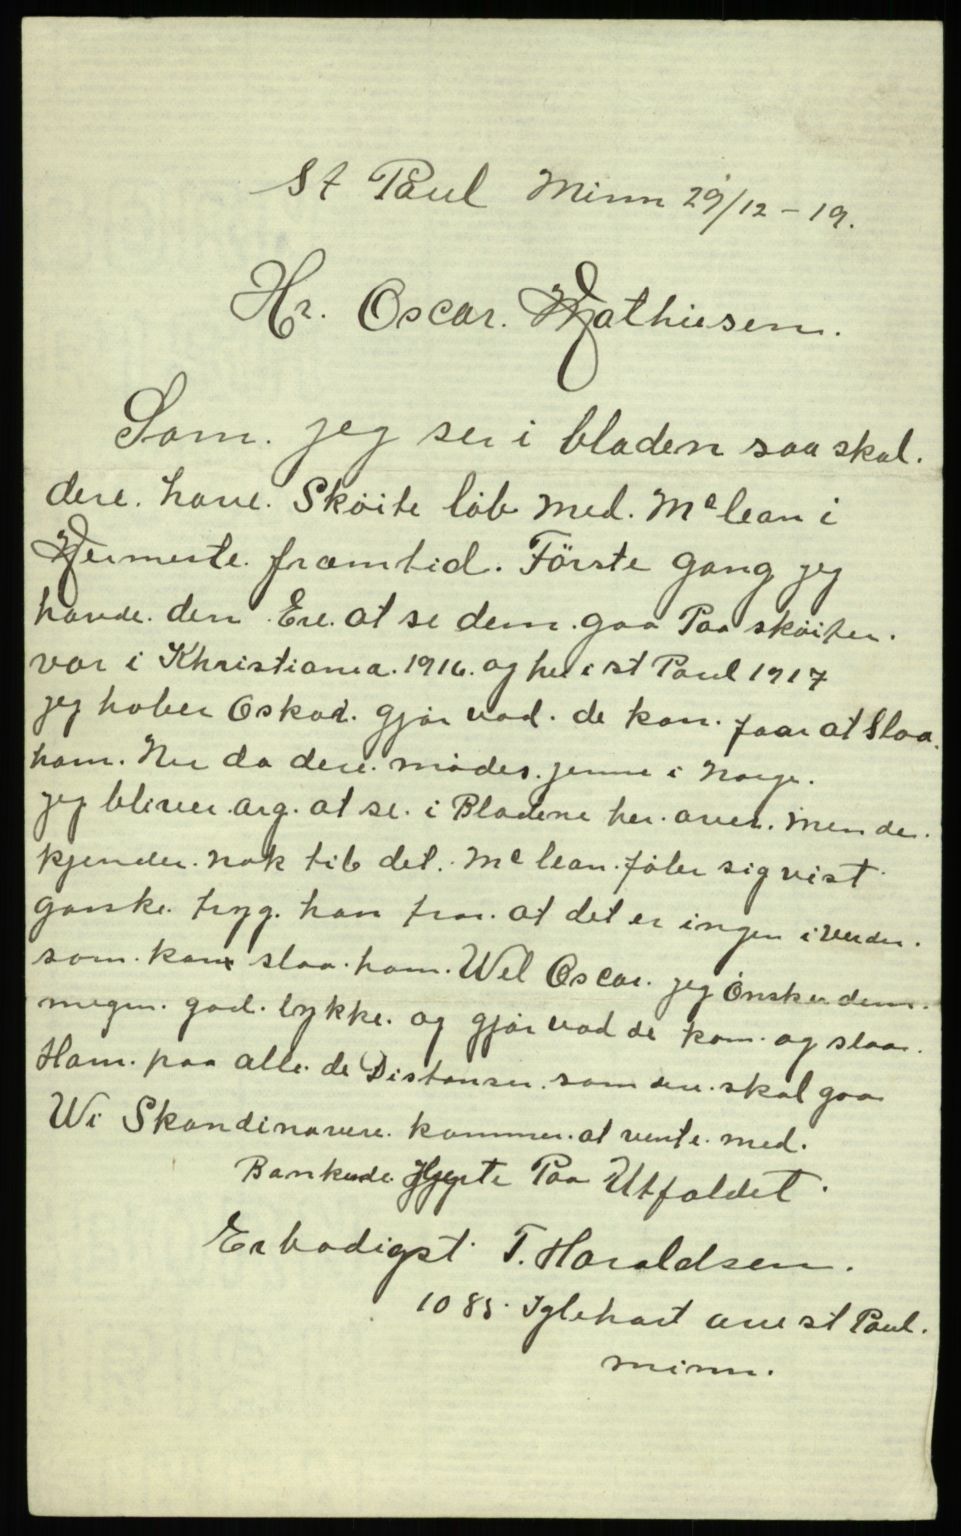 St Paul Minn 29/12 – 19.
Hr. Oscar. Mathiesen.
Som. jeg ser i bladen saa skal.
dere. have. Skøite løb med. Mc lean i
Nermeste. framtid. Förste gang jeg
havde. den Ere. at se dem. gaa Paa skøiter.
var i Khristiania. 1916. og her i st Paul 1917
jeg haber Oskar. gjør vad. de kan. faar at Slaa.
ham. Ner da dere. mødes. jenne i Norge.
jeg bliver. arg. at se. i Bladene her. aver. men de.
kjender. nok till det. Mc lean. føler sig vist
ganske. tryg. han tror. at det er ingen i verden.
som. kan slaa. ham. Wel Oscar. jeg Ønsker dem.
megen. god. lykke. og gjør vad de kan. og slaa.
Ham. paa alle. de Distanser. som dere. skal gaa
Wi Skandinavere. kommer. at vente. med.
Bankende. Hjerte Paa Utfaldet.
Erbødigst T. Haraldsen.
1085. Iglehart ave st Paul.
minn.